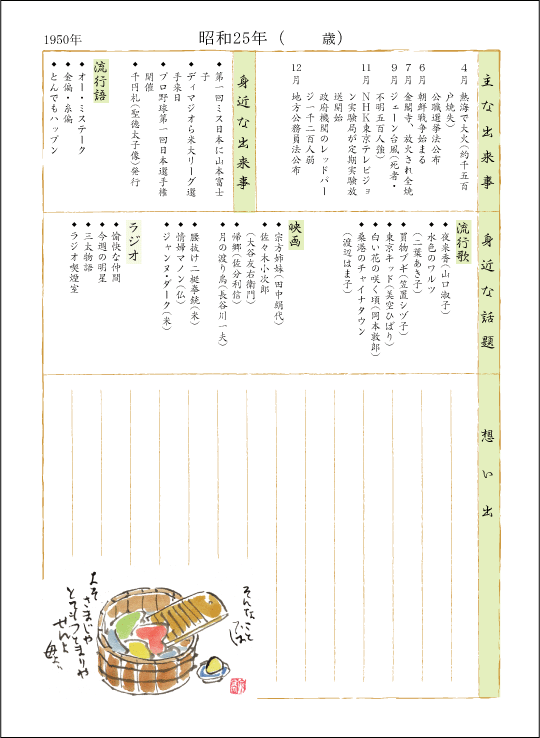 1950年
昭和25年（　　歳）
主な出来事
4月 熱海で大火(約千五百
戸焼失)
公職選挙法公布
6月 朝鮮戦争始まる
7月 金閣寺、放火され全焼
9月 ジェーン台風(死者・
不明五百人強)
11月 NHK東京テレビジョ
ン実験局が定期実験放
送開始
政府機関のレッドパー
ジ一千二百人弱
12月 地方公務員法公布
身近な出来事
◆第一回ミス日本に山本富士
子
◆ディマジオら米大リーグ選
手来日
◆プロ野球第一回日本選手権
開催
◆千円札(聖徳太子像)発行
流行語
◆オー・ミステーク
◆金偏・糸偏
◆とんでもハップン
身近な話題
流行歌
◆夜来香(山口淑子)
◆水色のワルツ
(二葉あき子)
◆買物ブギ(笠置シヅ子)
◆東京キッド(美空ひばり)
◆白い花の咲く頃(岡本敦郎)
◆桑港のチャイナタウン
(渡辺はま子)
映画
◆宗方姉妹(田中絹代)
◆佐々木小次郎
(大谷友右衛門)
◆帰郷(佐分利信)
◆月の渡り鳥(長谷川一夫)
◆腰抜け二挺拳銃(米)
◆情婦マノン(仏)
◆ジャンヌ・ダーク(米)
ラジオ
◆愉快な仲間
◆今週の明星
◆三太物語
◆ラジオ喫煙室
想い出
そんなこと
では
よそ
さまじゃ
とてもつとまりや
せんよ